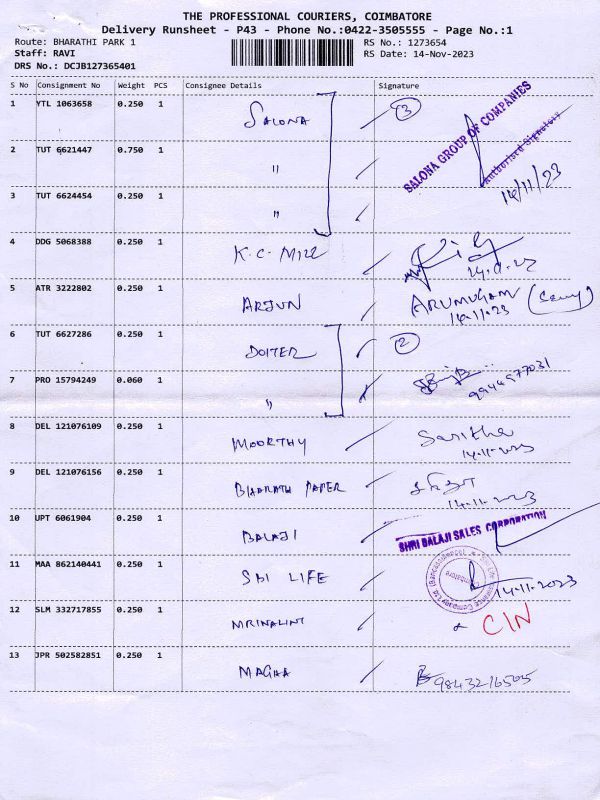 THE PROFESSIONAL COURIERS, COIMBATORE
Delivery Runsheet - P43 - Phone No.:0422-3505555 - Page No.:1
Route: BHARATHI PARK 1 RS No.: 1273654
Staff: RAVI RS Date: 14-Nov-2023
DRS No.: DCJB127365401
S No Consignment No Weight PCS Consignee Details Signature
1 YTL 1063658 0.250 1 SALONA 3 SALONA GROUP OF COMPANIES
Authorised Signatory
2 TUT 6621447 0.750 1 "
14/11/23
3 TUT 6624454 0.250 1 "
4 DDG 5068388 0.250 1 K.C. Mill
5 ATR 3222802 0.250 1 ARJUN ARUMUGAM
14.11.23
6 TUT 6627286 0.250 1 DOITER 2
7 PRO 15794249 0.060 1 " 9944577031
8 DEL 121076109 0.250 1 MOORTHY Saritha
14.11.2023
9 DEL 121076156 0.250 1 BHARATH PAPER
14.11.2023
10 UPT 6061904 0.250 1 BALAJI SHRI BALAJI SALES CORPORATION
11 MAA 862140441 0.250 1 SBI LIFE 14.11.2023
12 SLM 332717855 0.250 1 MRINALINI CIN
13 JPR 502582851 0.250 1 MAGHA 9843216505